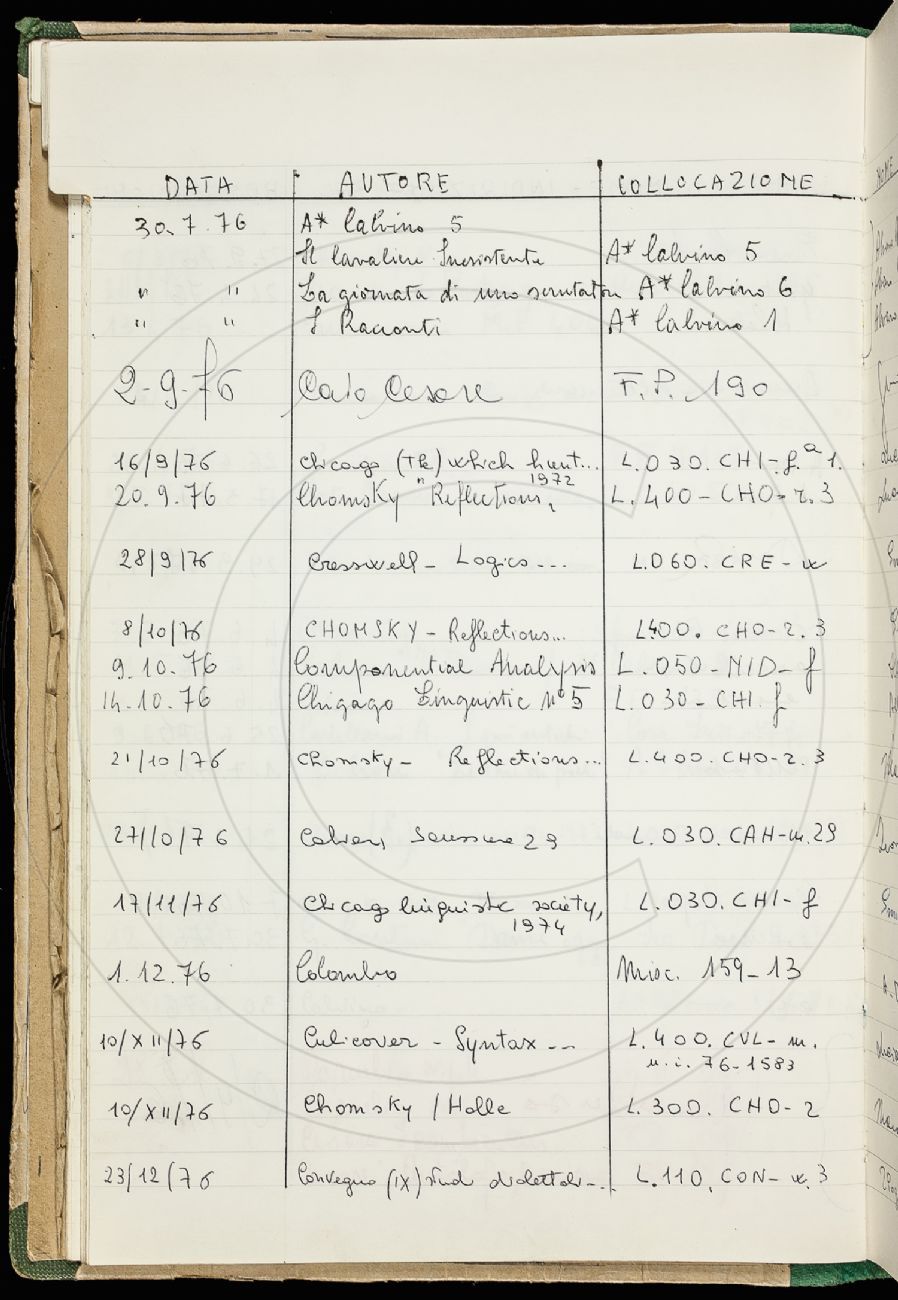 DATA AUTORE COLLOCAZIONE
30.7.76 A* Calvino 5
Il Cavaliere Inesistente A* Calvino 5
" " La giornata di uno scrutatore A* Calvino 6
" " I Racconti A* Calvino 1
2-9-76 Caio Cesare F.P. 190
16/9/76 Chicago (The) which hunt... L.030.CHI-f.a 1.
1972
20.9.76 Chomsky " Reflections, L.400-CHO-r.3
28/9/76 Cresswell - Logics... L.060.CRE-
8/10/76 CHOMSKY - Reflections... L400.CHO-2.3
9.10.76 Componential Analysis L.050-NID-f
14.10.76 Chigago Linguistic N°5 L.030-CHI.f
21/10/76 Chomsky - Reflections... L.400.CHO-2.3
27/10/76 Saussure 29 L.030.CAH-u.29
17/11/76 Chicago linguistic society, L.030.CHI-f
1974
1.12.76 Colombo Misc. 159-13
10/XII/76 Culicover - Syntax --- L.400.CUL-m.
n.i. 76-1583
10/XII/76 Chomsky/Halle L.300.CHO-2
23/12/76 Convegno (IX) studi dialettali-.. L.110.CON-